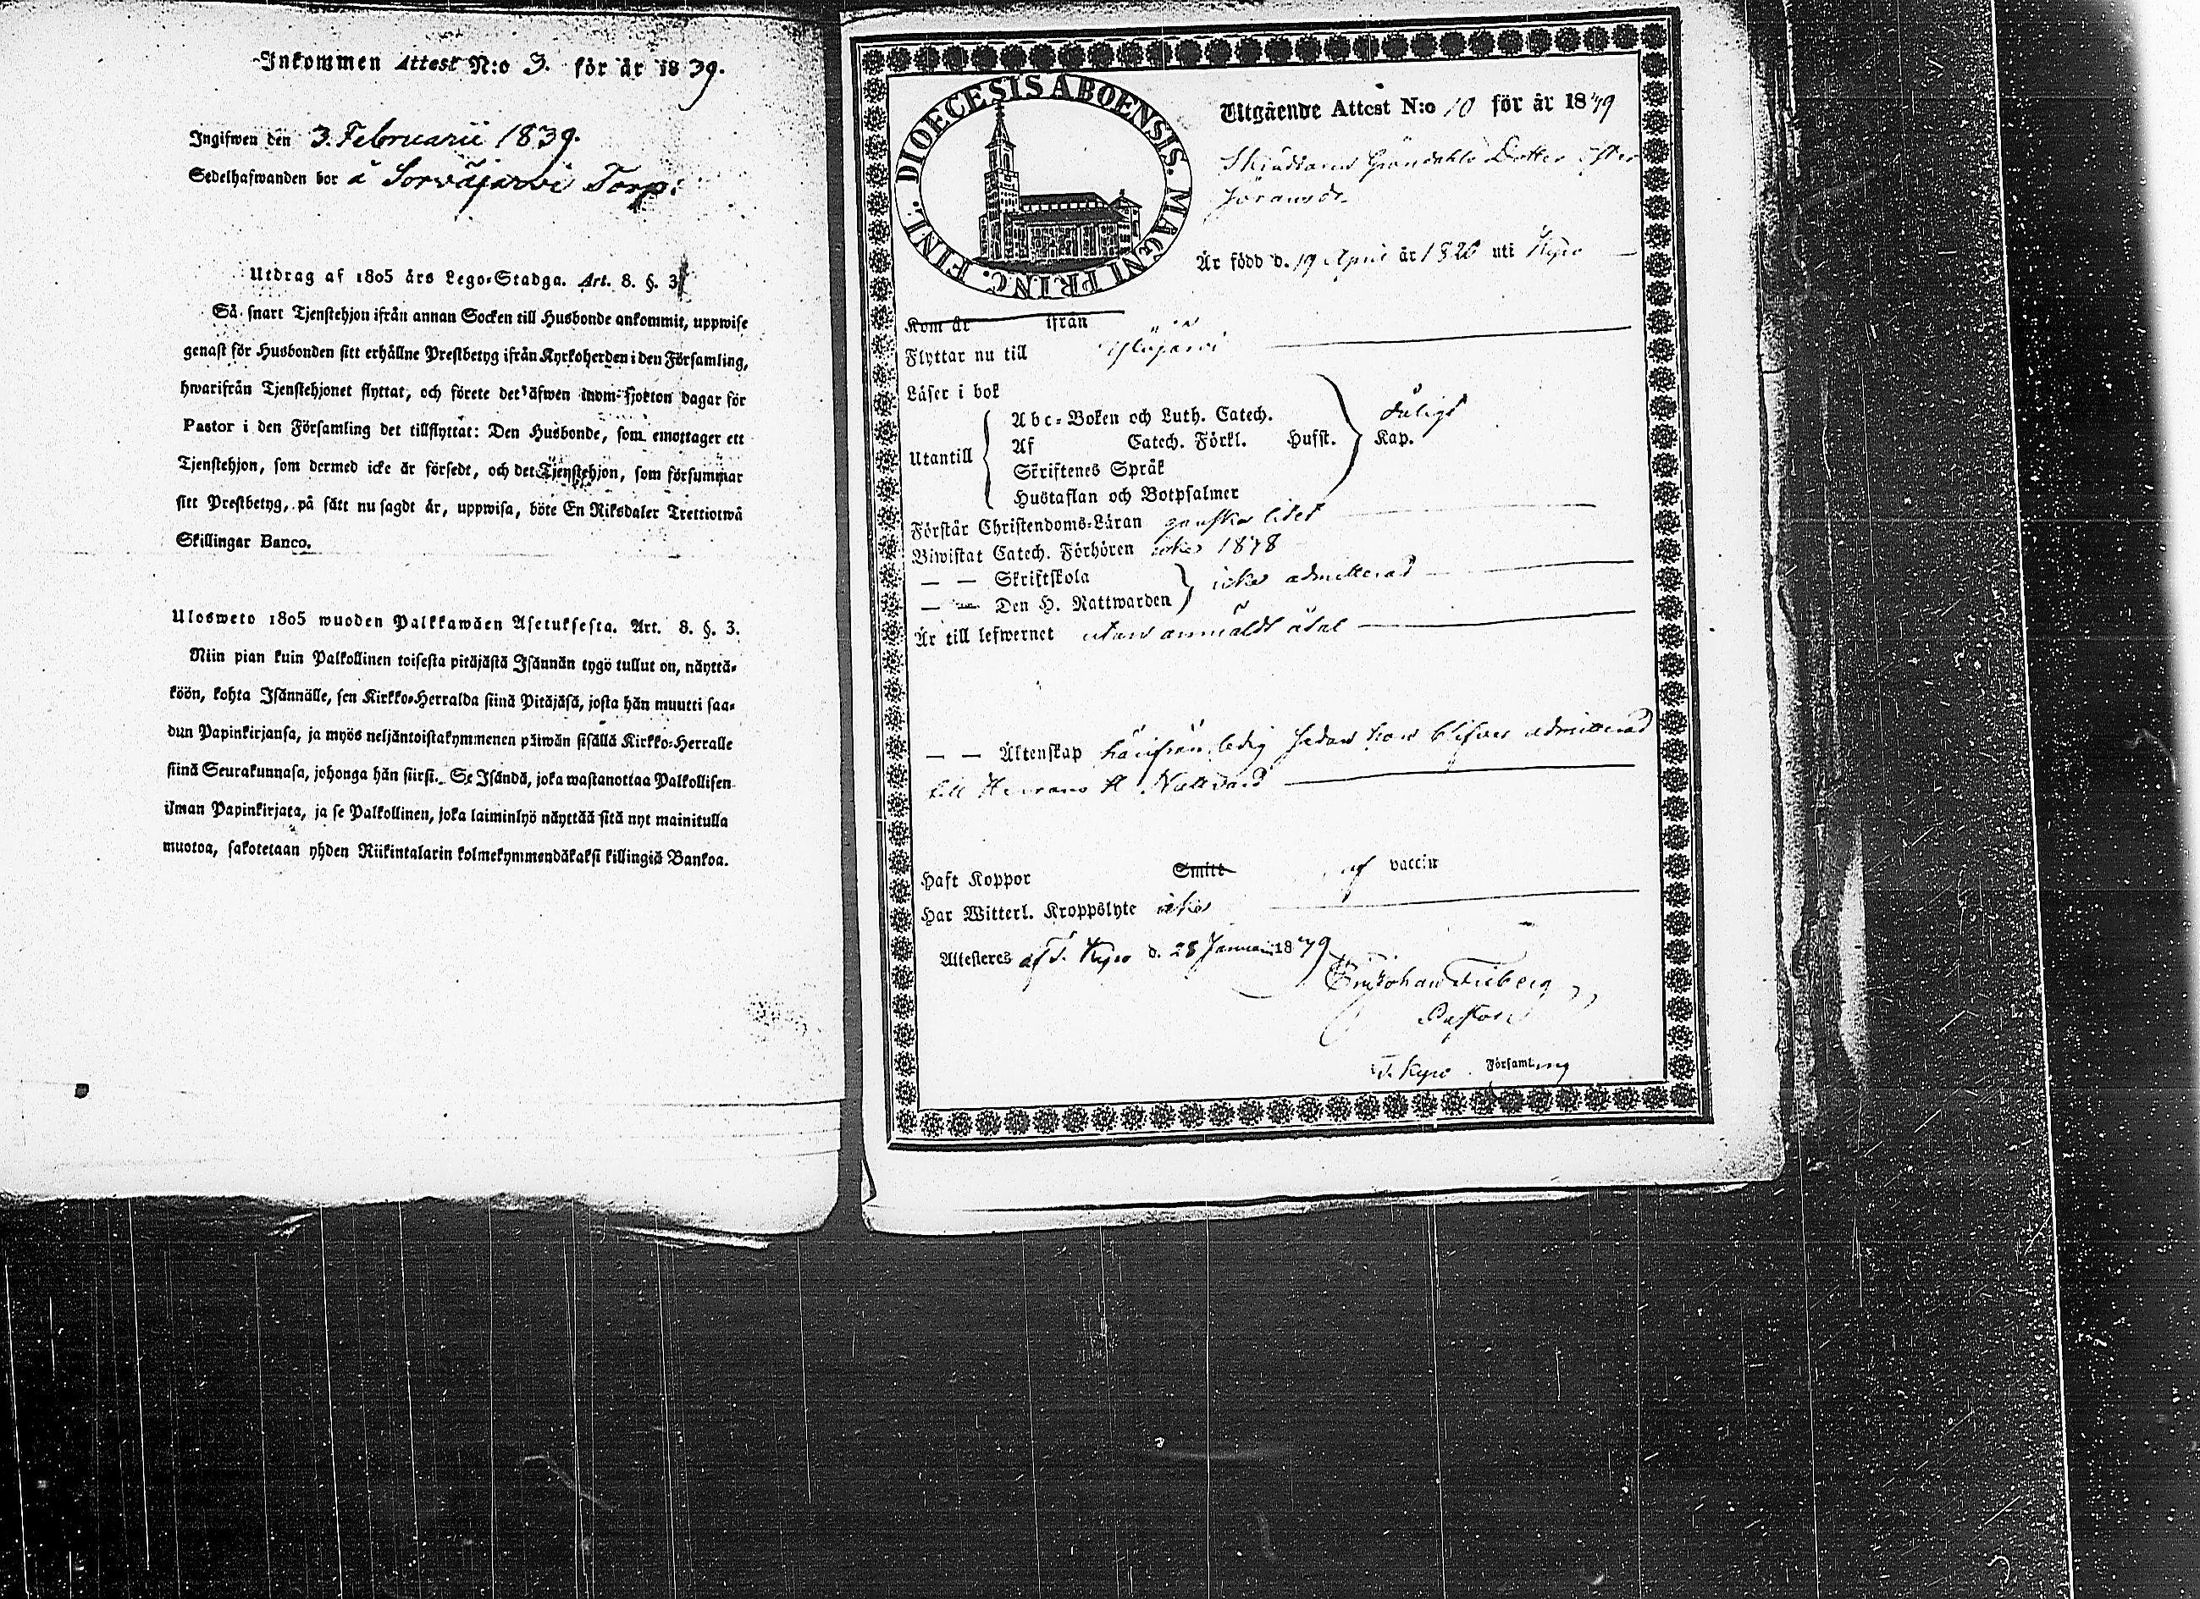 Inkommen Attest N:o 3. för år 1839.
Ingifwen den 3. Februarii 1839.
Sedelhafwanden bor å Sorvajärvi Torp.
Utdrag af 1805 års Lego-Stadga. Art. 8. §. 3.
Så snart Tjenstehjon ifrån annan Socken till Husbonde ankommit, uppwise
genast för Husbonden sitt erhållne Prestbetyg ifrån Kyrkoherden i den Församling,
hwarifrån Tjenstehjonet flyttat, och förete det äfwen inom fjorton dagar för
Pastor i den Församling det tillflyttat: Den Husbonde, som emottager ett
Tjenstehjon, som dermed icke är försedt, och det Tjenstehjon, som försummar
sitt Prestbetyg, på sätt nu sagdt är, uppwisa, böte En Riksdaler Trettiotwå
Skillingar Banco.
Ulosweto 1805 wuoden Palkkawäen Asetuksesta. Art. 8. §. 3.
Niin pian kuin Palkollinen toisesta pitäjästä Isännän tygö tullut on, näyttä-
köön, kohta Isännälle, sen Kirkko-Herralda siinä Pitäjäsä, josta hän muutti saa-
dun Papinkirjansa, ja myös neljäntoistakymmenen päiwän sisällä Kirkko-Herralle
siinä Seurakunnasa, johonga hän siirsi. Se Isändä, joka wastanottaa Palkollisen
ilman Papinkirjata, ja se Palkollinen, joka laiminlyö näyttää sitä nyt mainitulla
muotoa, sakotetaan yhden Riikintalarin kolmekymmendäkaksi killingiä Bankoa.
DIOECESIS ABOENSIS. MAGNI PRINC. FINL.
Utgående Attest N:o 10 för år 1839
Gröndahls Dotter
Är född d. 19 April år 1820 uti Kyro
Kom år ifrån
Flyttar nu till Ylöjärvi
Läser i bok
Utantill
Abc-Boken och Luth. Catech.
Af Catech. Förkl. Hufst. Kap.
Skriftenes Språk
Hustaflan och Botpsalmer
dåligt
Förstår Christendoms-Läran ganska litet
Biwistat Catech. Förhören 1838
— — Skriftskola
— — Den H. Nattwarden
icke admitterad
Är till lefwernet utan anmäldt åtal
— — Äktenskap härifrån ledig sedan hon blifver admitterad
till Herrans H. Nattvard
Haft Koppor Smitt af vaccin
Har Witterl. Kroppslyte icke
Attesteres af T. Kyro d. 28 Januari 1839
Johan Friberg
Pastor
i T. Kyro Församling